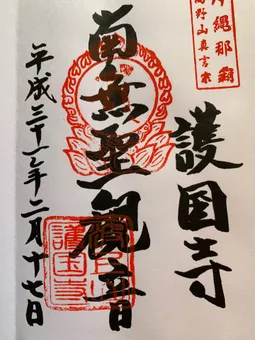 沖縄那覇
高野山真言宗
護国寺
南無聖観音
平成三十一年二月十七日
護国寺